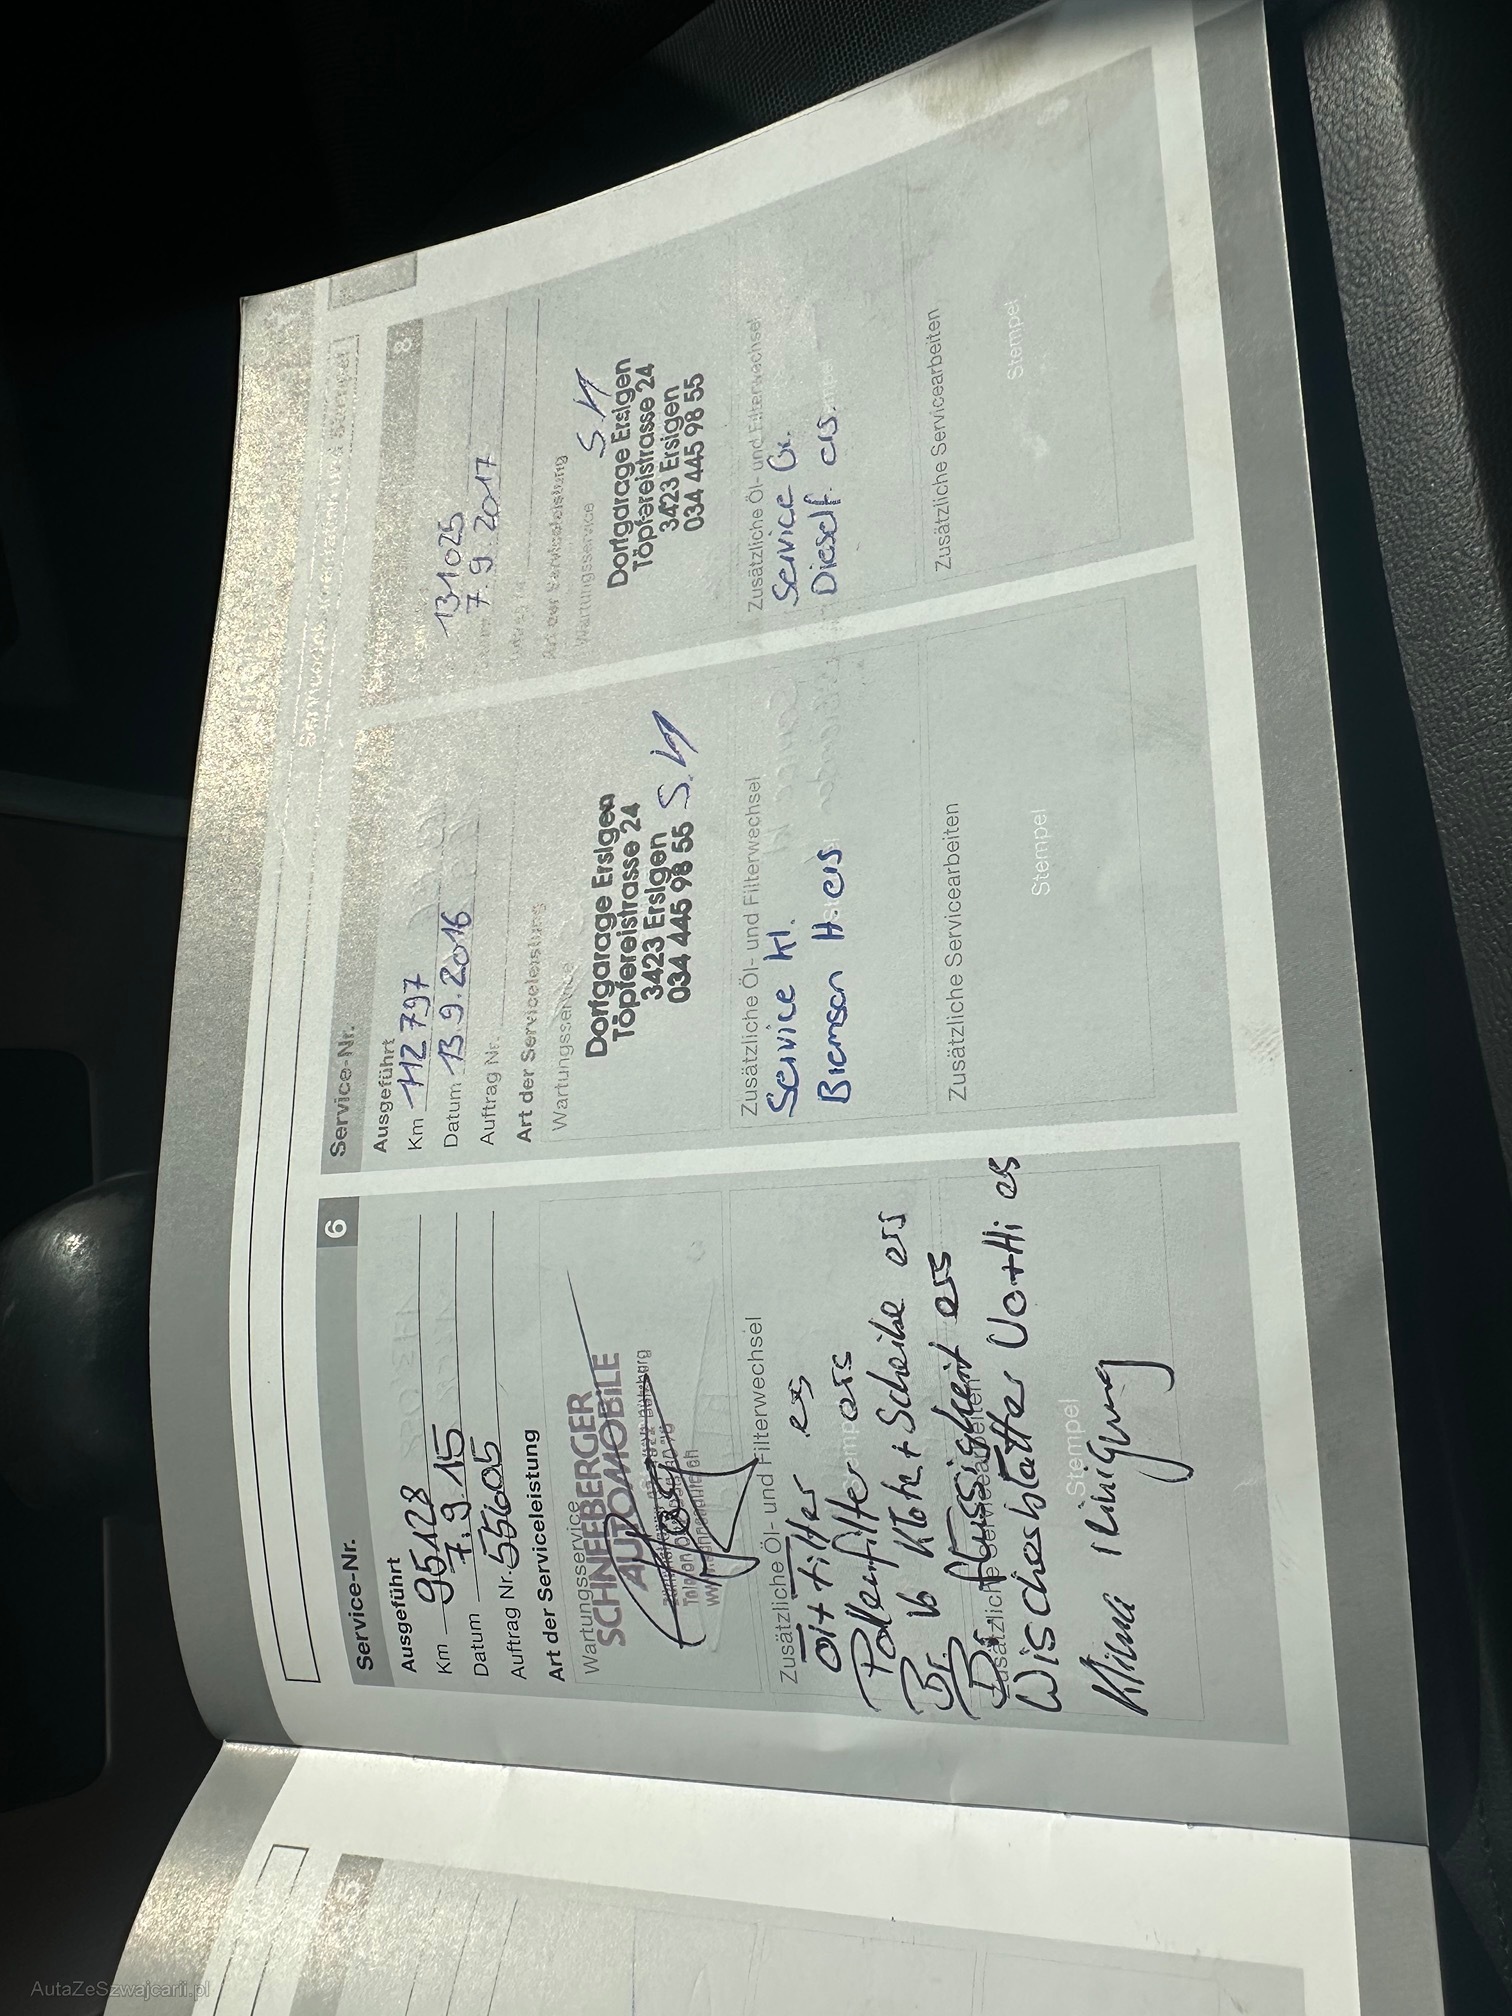 Service-Nr. 6
Ausgeführt
Km 95128
Datum 7.9.15
Auftrag Nr. 55605
Art der Serviceleistung
Wartungsservice
SCHNEEBERGER
AUTOMOBILE
Zusätzliche Öl- und Filterwechsel
Öl + Filter ers
Pollenfilter ers
Br. Klötze + Scheibe ers
Br. flüssigkeit ers
Zusätzliche Servicearbeiten
Wischerblätter Vo + Hi ers
Stempel
Klima reinigung
Service-Nr.
Ausgeführt
Km 112797
Datum 13.9.2016
Auftrag Nr.
Art der Serviceleistung
Wartungsservice
Dorfgarage Ersigen
Töpfereistrasse 24
3423 Ersigen
034 445 98 55 S.H
Zusätzliche Öl- und Filterwechsel
Service Kl.
Bremsen H. ers
Zusätzliche Servicearbeiten
Stempel
8
131025
7.9.2017
Art der Serviceleistung
Wartungsservice
S.H
Dorfgarage Ersigen
Töpfereistrasse 24
3423 Ersigen
034 445 98 55
Zusätzliche Öl- und Filterwechsel
Service Gr.
Dieself. ers.
Zusätzliche Servicearbeiten
Stempel
5
AutaZeSzwajcarii.pl